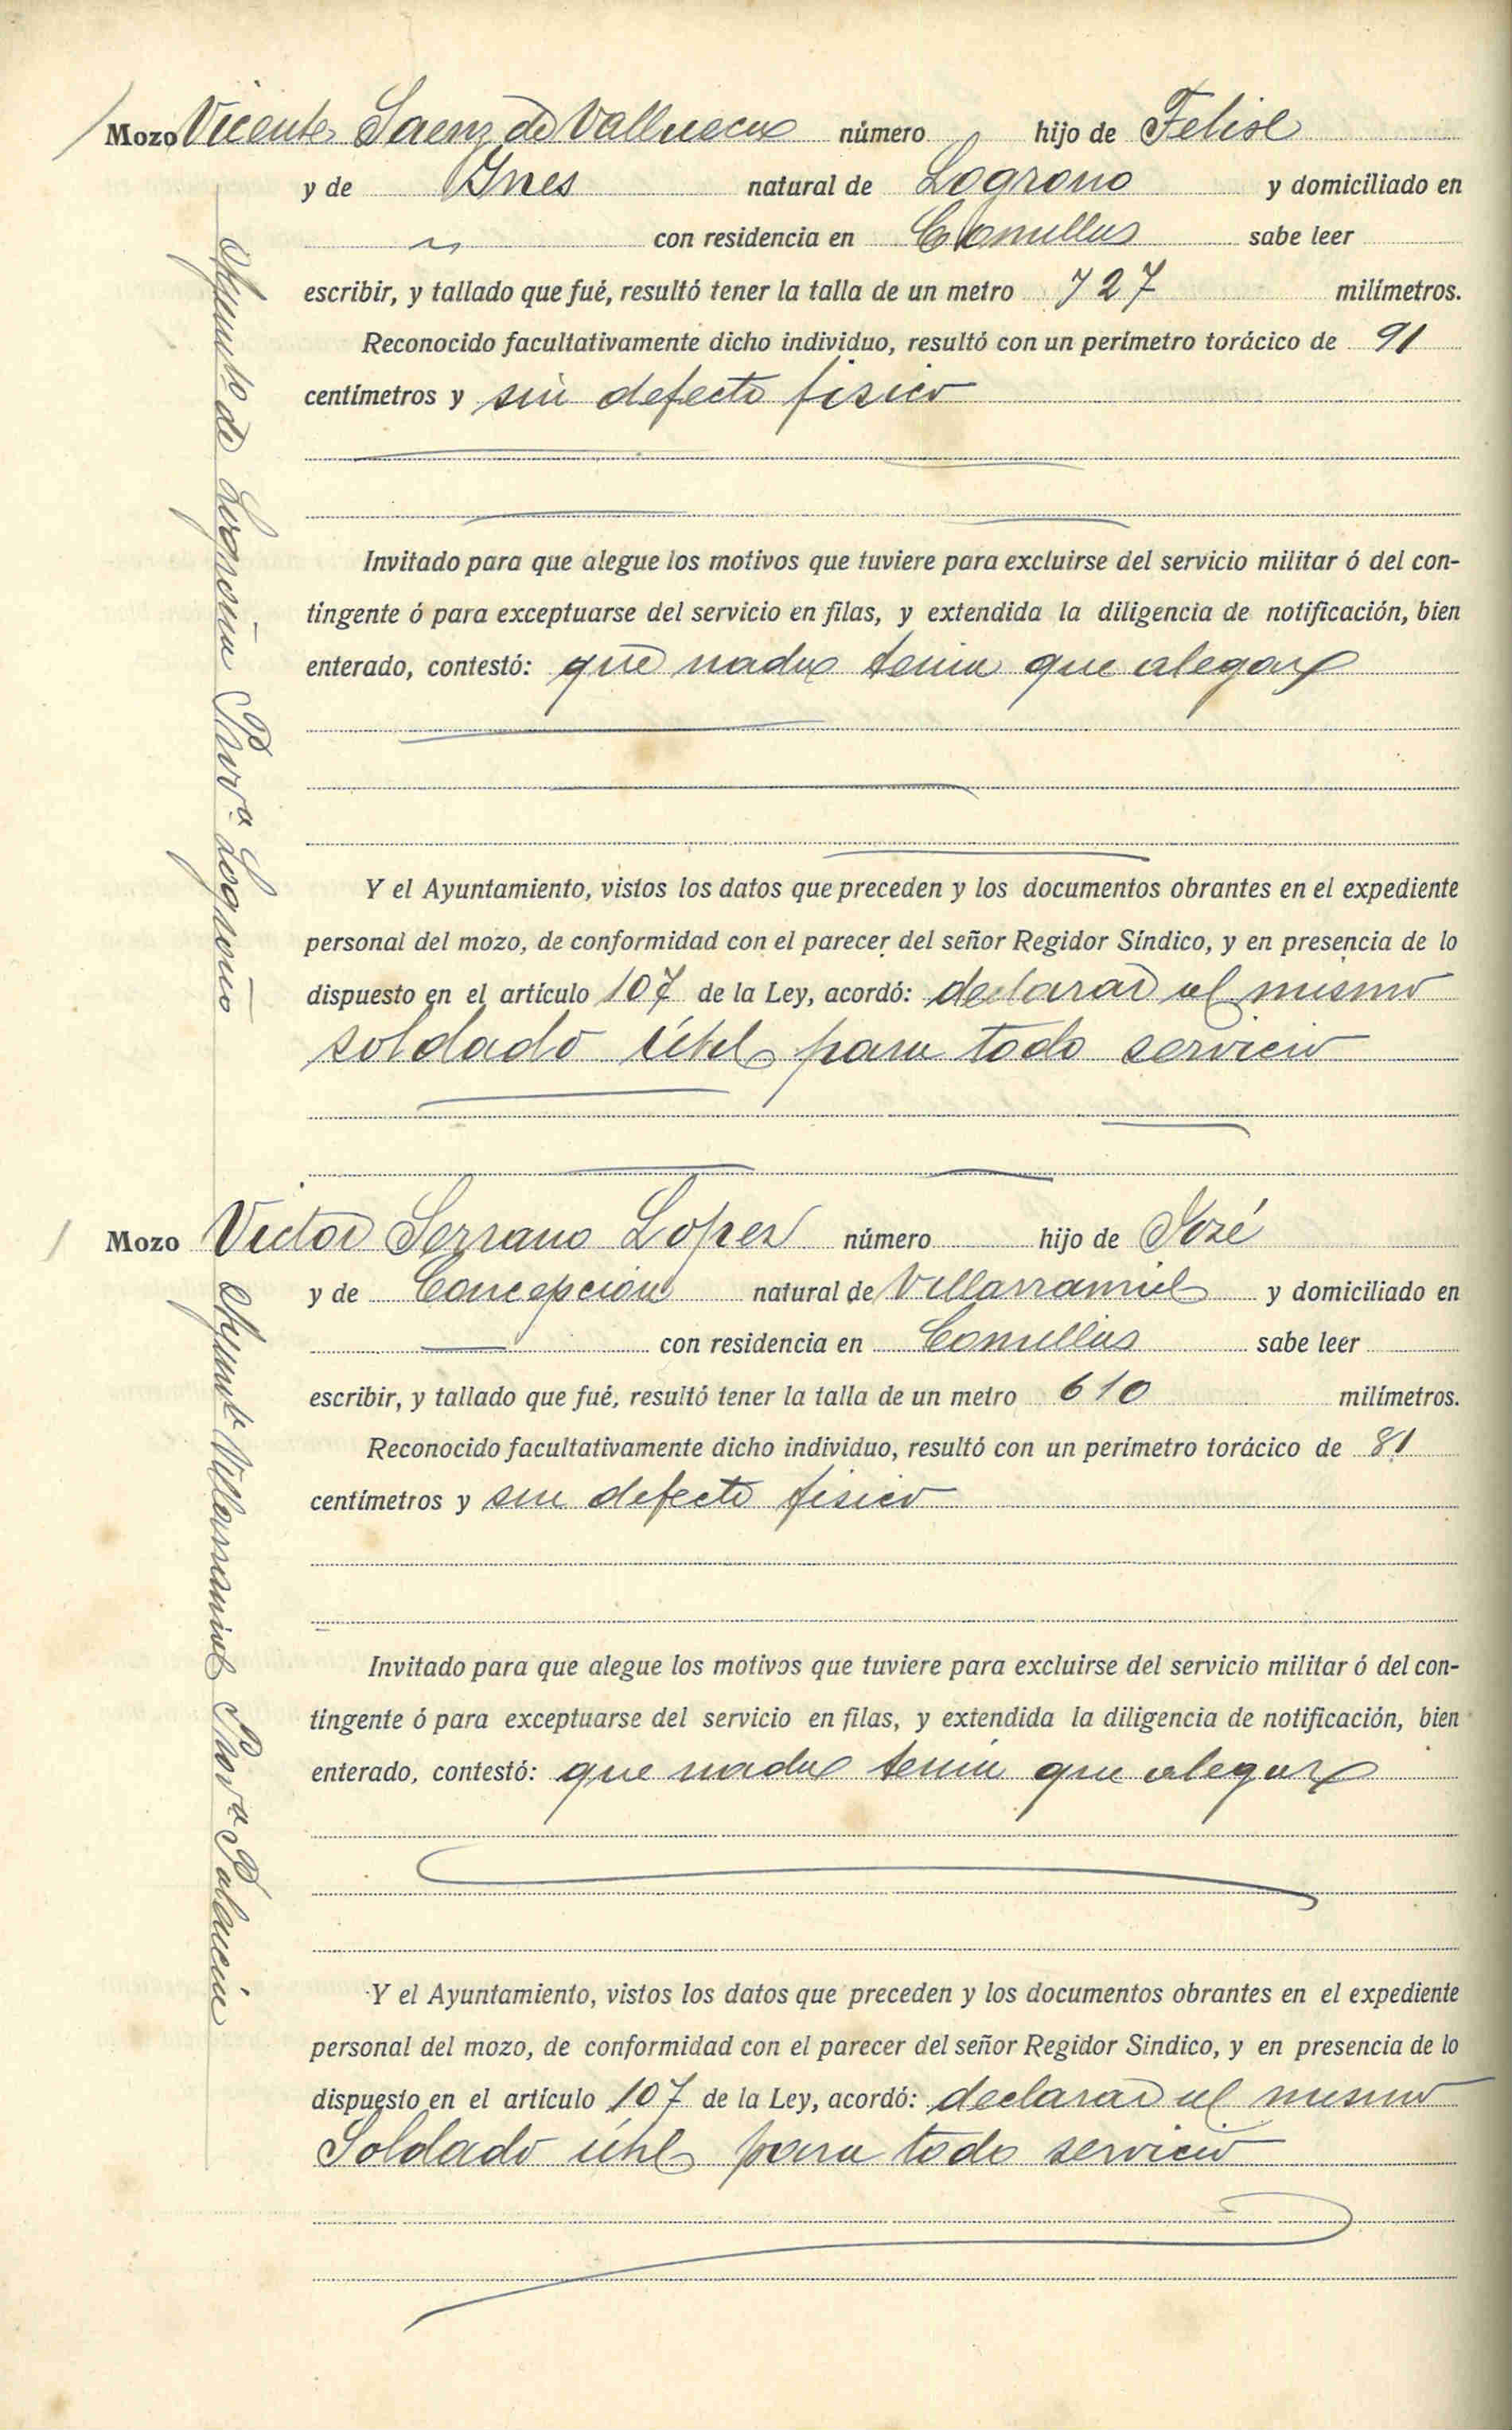 Mozo Vicente Saenz de Valluecа número hijo de Felise
y de Ynes natural de Logrono y domiciliado en
con residencia en Comillas sabe leer
escribir, y tallado que fué, resultó tener la talla de un metro 727 milímetros.
Reconocido facultativamente dicho individuo, resultó con un perímetro torácico de 91
centímetros y sin defecto fisico
Invitado para que alegue los motivos que tuviere para excluirse del servicio militar ó del con-
tingente ó para exceptuarse del servicio en filas, y extendida la diligencia de notificación, bien
enterado, contestó: que nada tenia que alegar
Y el Ayuntamiento, vistos los datos que preceden y los documentos obrantes en el expediente
personal del mozo, de conformidad con el parecer del señor Regidor Síndico, y en presencia de lo
dispuesto en el artículo 107 de la Ley, acordó: declarar al mismo
soldado útil para todo servicio
Prov.ª Logroño
Mozo Victor Serrano Lopez número hijo de José
y de Concepción natural de Villarramiel y domiciliado en
— con residencia en Comillas sabe leer
escribir, y tallado que fué, resultó tener la talla de un metro 610 milímetros.
Reconocido facultativamente dicho individuo, resultó con un perímetro torácico de 81
centímetros y sin defecto fisico
Invitado para que alegue los motivos que tuviere para excluirse del servicio militar ó del con-
tingente ó para exceptuarse del servicio en filas, y extendida la diligencia de notificación, bien
enterado, contestó: que nada tenia que alegar
Y el Ayuntamiento, vistos los datos que preceden y los documentos obrantes en el expediente
personal del mozo, de conformidad con el parecer del señor Regidor Sindico, y en presencia de lo
dispuesto en el artículo 107 de la Ley, acordó: declarar al mismo
Soldado útil para todo servicio
Ayunt.º Villarramiel Prov.ª Palencia